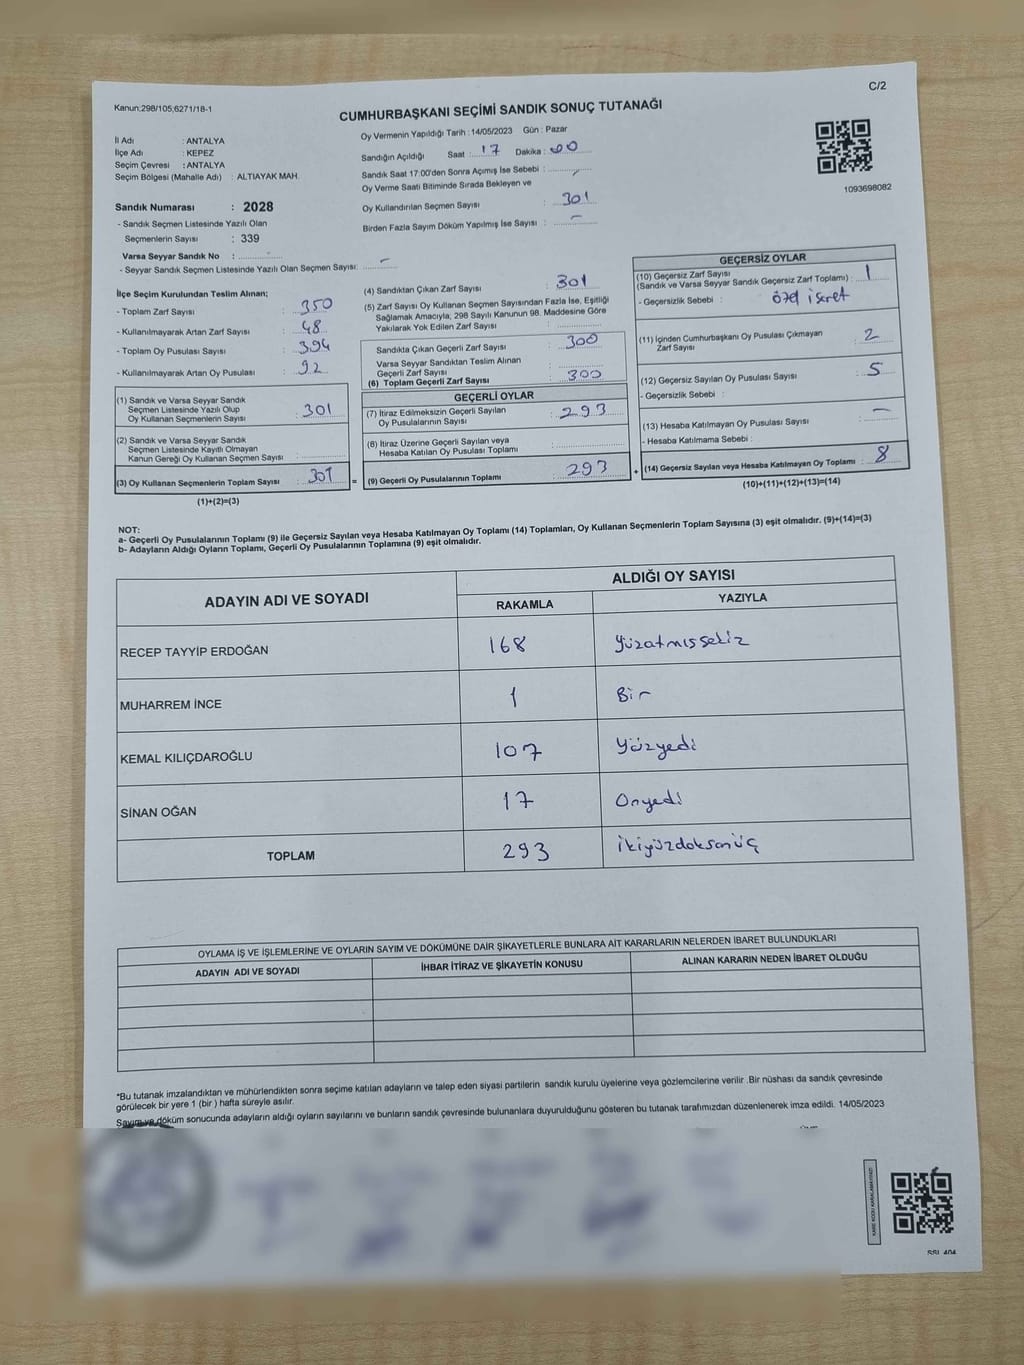 Kanun;298/105,6271/18-1
C/2
CUMHURBAŞKANI SEÇİMİ SANDIK SONUÇ TUTANAĞI
İl Adı : ANTALYA
İlçe Adı : KEPEZ
Seçim Çevresi : ANTALYA
Seçim Bölgesi (Mahalle Adı) : ALTIAYAK MAH.
Oy Vermenin Yapıldığı Tarih : 14/05/2023 Gün : Pazar
Sandığın Açıldığı Saat : 17 Dakika : 00
Sandık Saat 17:00'den Sonra Açımış İse Sebebi : -
Oy Verme Saati Bitiminde Sırada Bekleyen ve
Oy Kullandırılan Seçmen Sayısı : 301
Birden Fazla Sayım Döküm Yapılmış İse Sayısı : -
1093698082
Sandık Numarası : 2028
- Sandık Seçmen Listesinde Yazılı Olan
Seçmenlerin Sayısı : 339
Varsa Seyyar Sandık No :
- Seyyar Sandık Seçmen Listesinde Yazılı Olan Seçmen Sayısı: -
İlçe Seçim Kurulundan Teslim Alınan;
- Toplam Zarf Sayısı : 350
- Kullanılmayarak Artan Zarf Sayısı : 48
- Toplam Oy Pusulası Sayısı : 394
- Kullanılmayarak Artan Oy Pusulası : 92
(1) Sandık ve Varsa Seyyar Sandık
Seçmen Listesinde Yazılı Olup
Oy Kullanan Seçmenlerin Sayısı : 301
(2) Sandık ve Varsa Seyyar Sandık
Seçmen Listesinde Kayıtlı Olmayan
Kanun Gereği Oy Kullanan Seçmen Sayısı :
(3) Oy Kullanan Seçmenlerin Toplam Sayısı : 301
(1)+(2)=(3)
(4) Sandıktan Çıkan Zarf Sayısı : 301
(5) Zarf Sayısı Oy Kullanan Seçmen Sayısından Fazla İse, Eşitliği
Sağlamak Amacıyla, 298 Sayılı Kanunun 98. Maddesine Göre
Yakılarak Yok Edilen Zarf Sayısı :
Sandıkta Çıkan Geçerli Zarf Sayısı : 300
Varsa Seyyar Sandıktan Teslim Alınan
Geçerli Zarf Sayısı :
(6) Toplam Geçerli Zarf Sayısı : 300
GEÇERLİ OYLAR
(7) İtiraz Edilmeksizin Geçerli Sayılan
Oy Pusulalarının Sayısı : 293
(8) İtiraz Üzerine Geçerli Sayılan veya
Hesaba Katılan Oy Pusulası Toplamı :
= (9) Geçerli Oy Pusulalarının Toplamı : 293
GEÇERSİZ OYLAR
(10) Geçersiz Zarf Sayısı
(Sandık ve Varsa Seyyar Sandık Geçersiz Zarf Toplamı) : 1
- Geçersizlik Sebebi : özel işaret
(11) İçinden Cumhurbaşkanı Oy Pusulası Çıkmayan
Zarf Sayısı : 2
(12) Geçersiz Sayılan Oy Pusulası Sayısı : 5
- Geçersizlik Sebebi :
(13) Hesaba Katılmayan Oy Pusulası Sayısı : -
- Hesaba Katılmama Sebebi :
+ (14) Geçersiz Sayılan veya Hesaba Katılmayan Oy Toplamı : 8
(10)+(11)+(12)+(13)=(14)
NOT:
a- Geçerli Oy Pusulalarının Toplamı (9) ile Geçersiz Sayılan veya Hesaba Katılmayan Oy Toplamı (14) Toplamları, Oy Kullanan Seçmenlerin Toplam Sayısına (3) eşit olmalıdır. (9)+(14)=(3)
b- Adayların Aldığı Oyların Toplamı, Geçerli Oy Pusulalarının Toplamına (9) eşit olmalıdır.
ADAYIN ADI VE SOYADI
ALDIĞI OY SAYISI
RAKAMLA YAZIYLA
RECEP TAYYİP ERDOĞAN 168 Yüzatmışsekiz
MUHARREM İNCE 1 Bir
KEMAL KILIÇDAROĞLU 107 Yüzyedi
SİNAN OĞAN 17 Onyedi
TOPLAM 293 ikiyüzdoksanüç
OYLAMA İŞ VE İŞLEMLERİNE VE OYLARIN SAYIM VE DÖKÜMÜNE DAİR ŞİKAYETLERLE BUNLARA AİT KARARLARIN NELERDEN İBARET BULUNDUKLARI
ADAYIN ADI VE SOYADI İHBAR İTİRAZ VE ŞİKAYETİN KONUSU ALINAN KARARIN NEDEN İBARET OLDUĞU
*Bu tutanak imzalandıktan ve mühürlendikten sonra seçime katılan adayların ve talep eden siyasi partilerin sandık kurulu üyelerine veya gözlemcilerine verilir .Bir nüshası da sandık çevresinde
görülecek bir yere 1 (bir ) hafta süreyle asılır.
Sayım ve döküm sonucunda adayların aldığı oyların sayılarını ve bunların sandık çevresinde bulunanlara duyurulduğunu gösteren bu tutanak tarafımızdan düzenlenerek imza edildi. 14/05/2023
KARE KODU KARALAMAYINIZ!